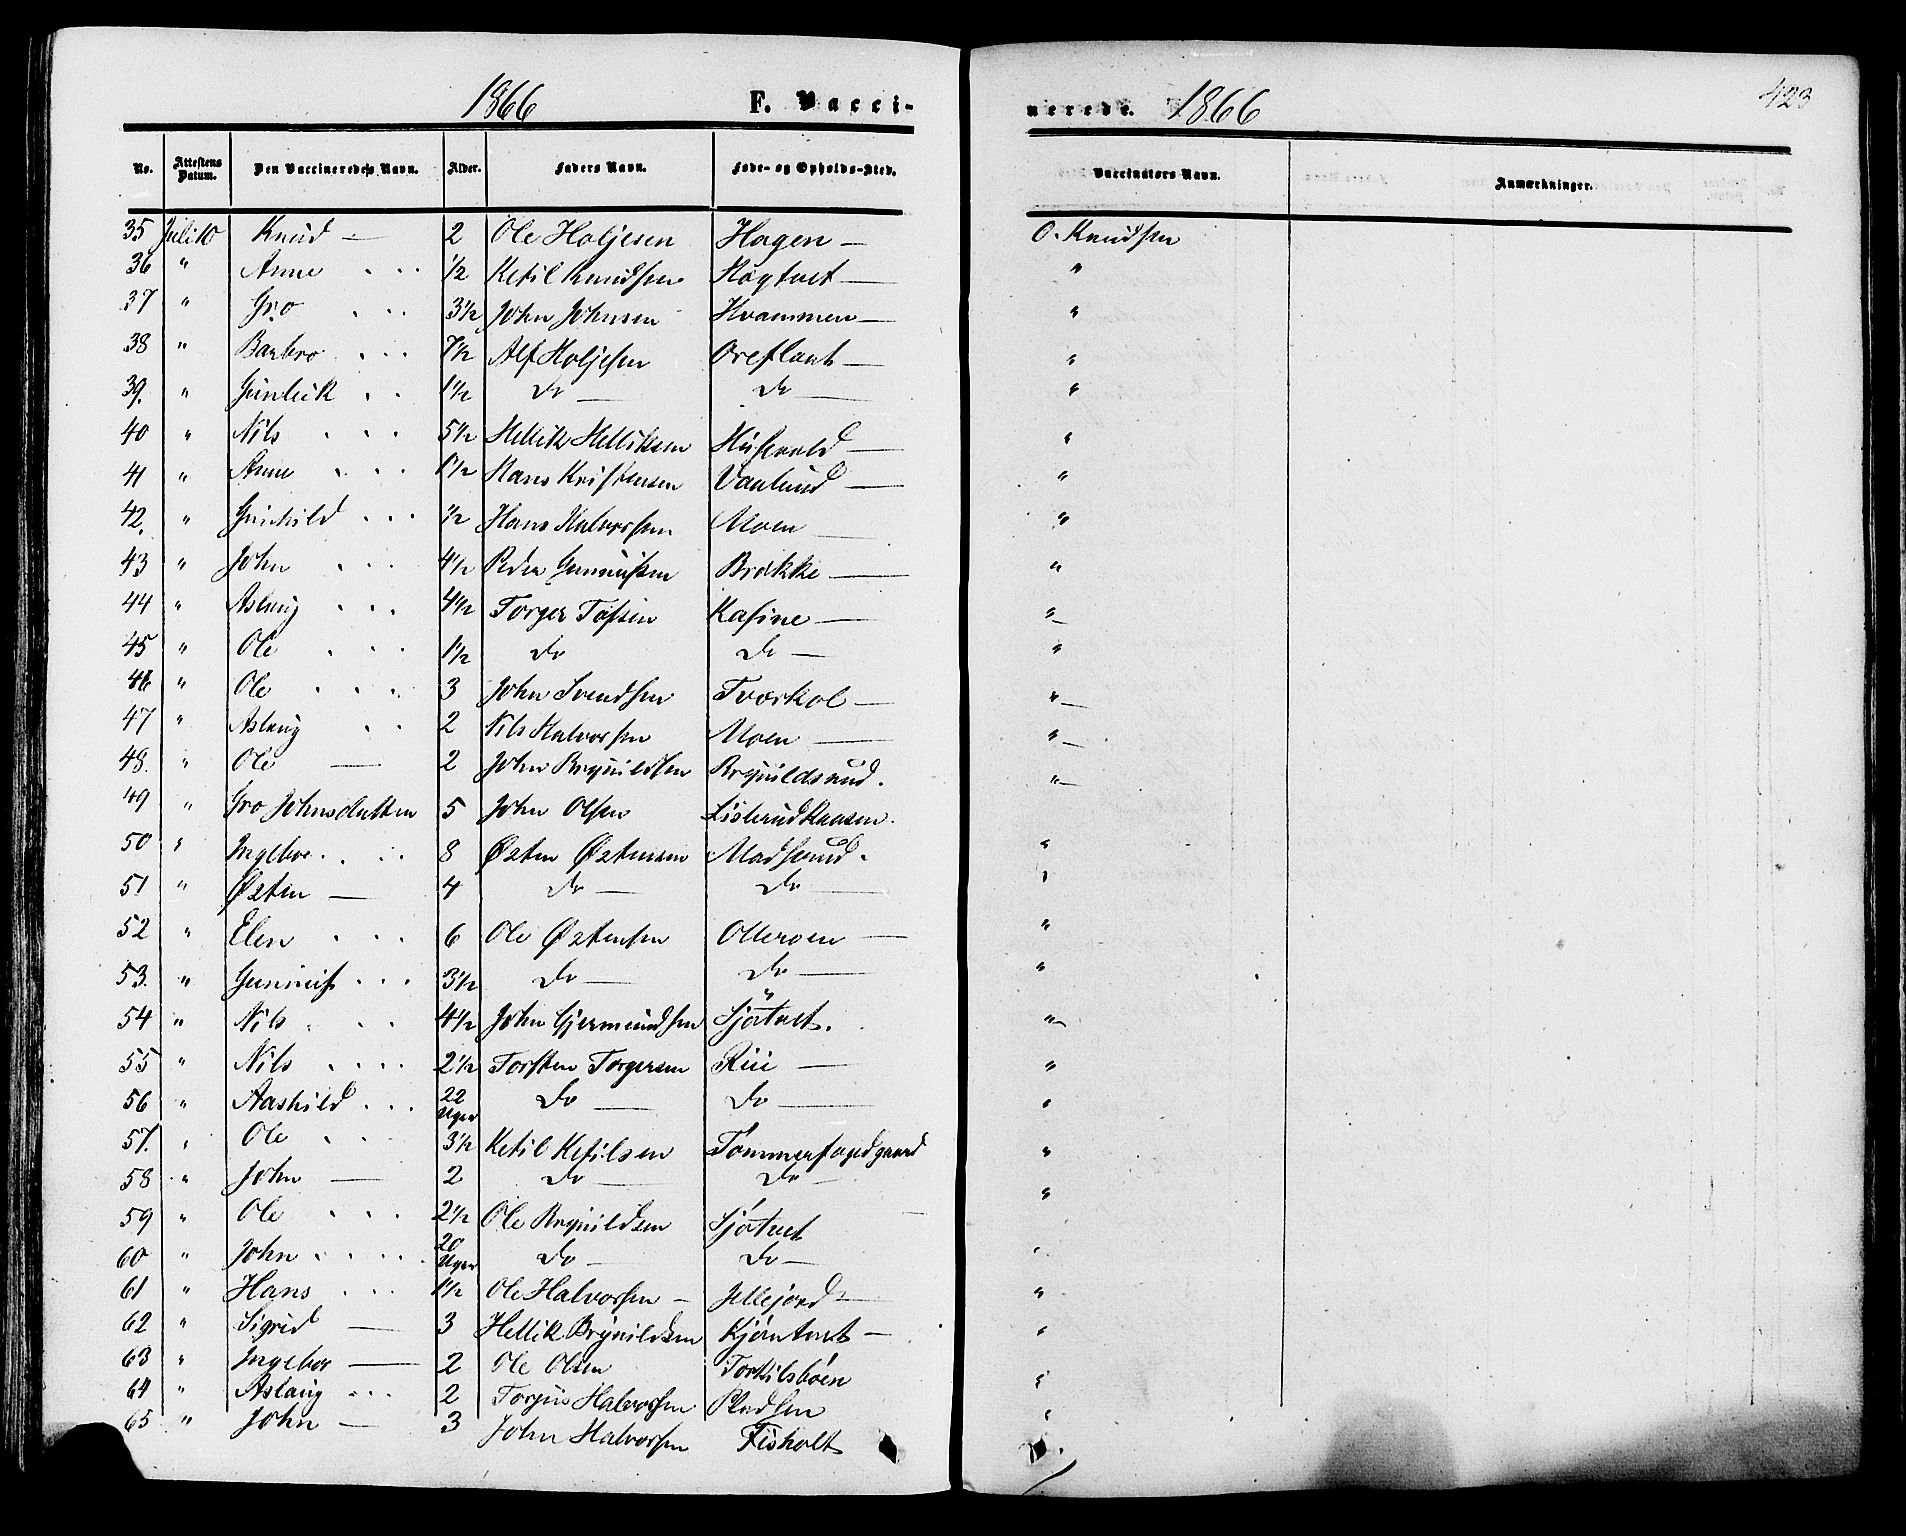 1866 F. Vacci-
No. Attestens Datum. Den Vaccineredes Navn. Alder. Faders Navn. Føde- og Opholds-Sted.
35 Juli 10 Knud — 2 Ole Holjesen Hagen —
36 " Anne . . . 1/2 Ketil Knudsen Høgtvet —
37 " Gro . . . 3 1/2 John Johnsen Hvammen —
38 " Barbro . . . 7 1/2 Alf Holjesen Oreflaat —
39. " Gunleik . . 1 1/2 do — do —
40 " Nils . . . 5 1/2 Hellik Helliksen Husevold —
41 " Anne . . . 1 1/2 Hans Kristensen Vaalund —
42. " Gunhild . . . 1/2 Hans Halvorsen Moen —
43 " John . . . 4 1/2 Peder Gunnufsen Brække —
44 " Aslaug . . . 4 1/2 Torger Tofsen Kasine —
45 " Ole . . . 1 1/2 do do —
46 " Ole . . . 3 John Svendsen Tværkol —
47 " Aslaug . . 2 Nils Halvorsen Moen —
48. " Ole — 2 John Brynildsen Brynildsrud.
49 " Gro Johnsdatten 5 John Olsen Lislerudhaasen.
50 " Ingebor . . . 8 Østen Østensen Madsrud.
51 " Østen — 4 do — do —
52 " Elen . . . 6 Ole Østensen Olleroen —
53. " Gunnuf . . . 3 1/2 do — do —
54 " Nils . . . 4 1/2 John Gjermundsen Sjötvet.
55 " Nils . . . . 2 1/2 Torsten Torgersen Rui —
56 " Aashild . . . 22 Uger do — do —
57. " Ole . . . 3 1/2 Ketil Ketilsen Tømmerfogedgaard
58 " John — 2 do — do —
59 " Ole . . . 2 1/2 Ole Brynildsen Sjøtvet
60 " John . . . . 20 Uger do — do —
61 " Hans . . . 1 1/2 Ole Halvorsen — Jellejord —
62 " Sigrid — 3 Hellik Brynildsen Kjøntvet —
63 " Ingebor — 2 Ole Olsen Torkilsbøen
64 " Aslaug . . . 2 Torjus Halvorsen Pladsen
65 " John — 3 John Halvorsen Fisholt
nerede. 1866 423
Vaccinators Navn. Anmærkninger.
O. Knudsen